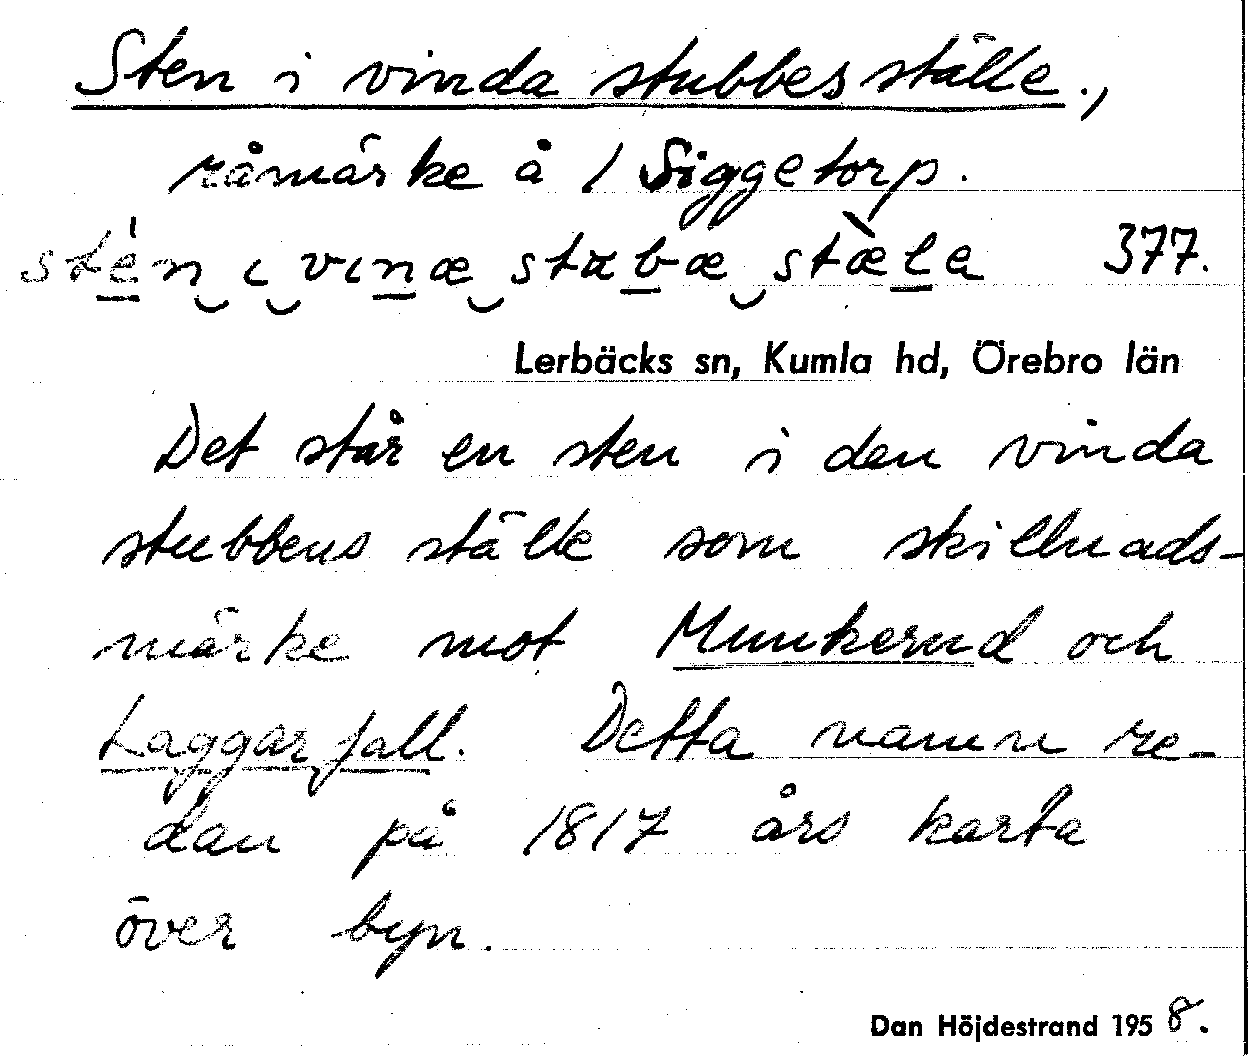 Sten i vinda stubbes ställe.,
råmärke å / Siggetorp.
stén i vinæ stubæ stæla 377.
Lerbäcks sn, Kumla hd, Örebro län
Det står en sten i den vinda
stubbens ställe som skillnads-
märke mot Munkerud och
Laggarfall. Detta namn re-
dan på 1817 års karta
över byn.
Dan Höjdestrand 1958.